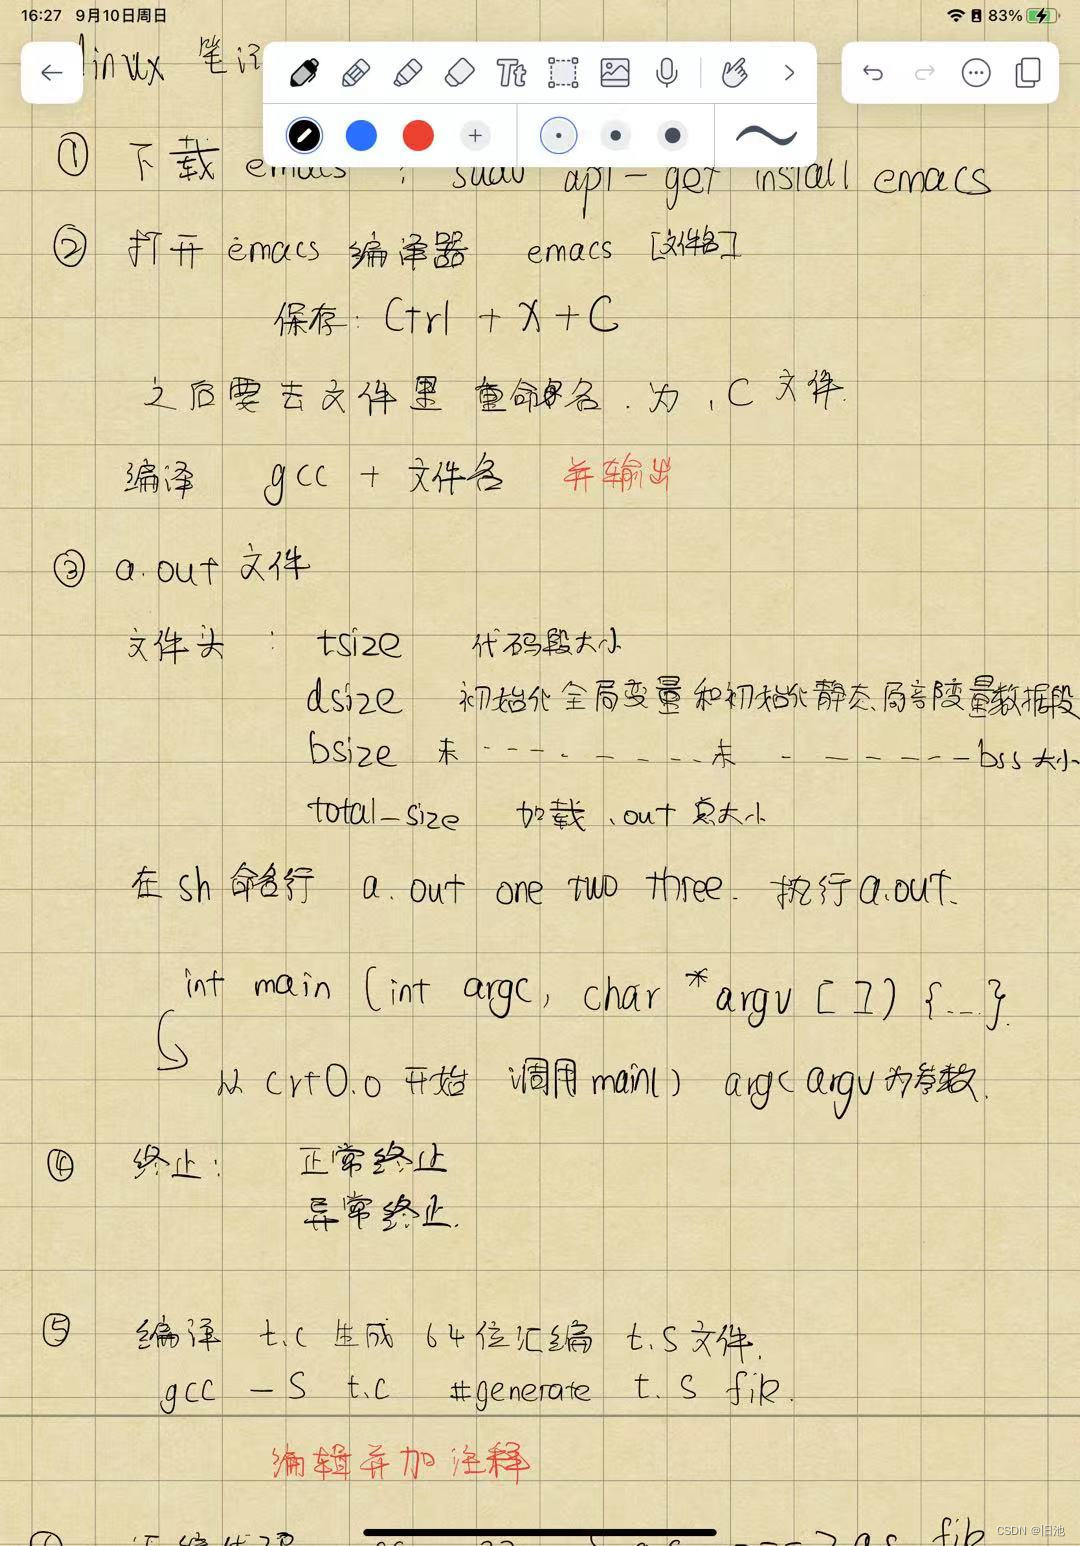 16:27 9月10日周日 83%
linux 笔记
Tt
① 下载 emacs : sudo apt-get install emacs
② 打开 emacs 编译器 emacs [文件名]
保存: Ctrl + X + C
之后要去文件里 重命名 . 为 .C 文件.
编译 gcc + 文件名 并输出
③ a.out 文件
文件头 : tsize 代码段大小
dsize 初始化全局变量和初始化静态局部变量数据段
bsize 未 ------- 未 ------- bss 大小
total_size 加载 .out 总大小
在 sh 命令行 a.out one two three. 执行 a.out.
int main (int argc, char *argv []) {...}.
从 crt0.o 开始 调用 main() argc argv 为参数.
④ 终止: 正常终止
异常终止.
⑤ 编译 t.c 生成 64位汇编 t.S 文件.
gcc -S t.c #generate t.S file.
编辑并加注释
CSDN @旧池